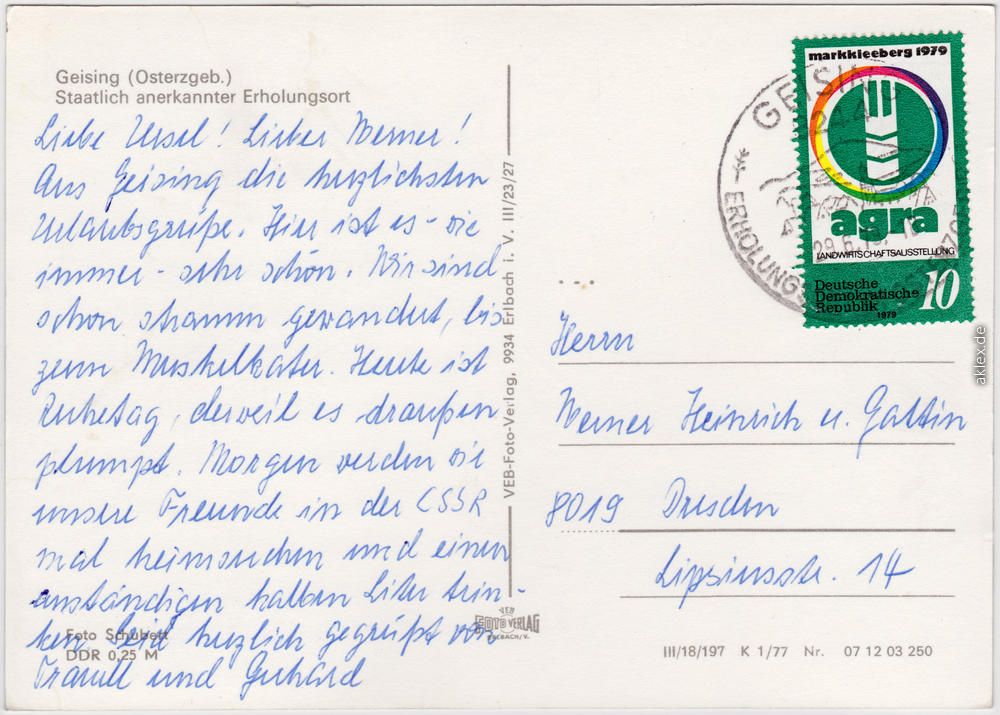 Geising (Osterzgeb.)
Staatlich anerkannter Erholungsort
Liebe Ursel! Lieber Werner!
Aus Geising die herzlichsten
Urlaubsgrüße. Hier ist es - wie
immer - sehr schön. Wir sind
schon stramm gewandert, bis
zum Muskelkater. Heute ist
Ruhetag, derweil es draußen
plumpt. Morgen werden wir
unsere Freunde in der CSSR
mal heimsuchen und einen
anständigen halben Liter trin-
ken. Seid herzlich gegrüßt von
und Gerhard
Foto Schubert
DDR 0,25 M
VEB-Foto-Verlag, 9934 Erlbach i. V. III/23/27
VEB
FOTO VERLAG
ERLBACH/V.
markkleeberg 1979
agra
LANDWIRTSCHAFTSAUSSTELLUNG
Deutsche
Demokratische
Republik
10
1979
GEISING
ERHOLUNGS
aklex.de
Herrn
Werner Heinrich u. Gattin
8019 Dresden
Lipsiusstr. 14
III/18/197 K 1/77 Nr. 07 12 03 250